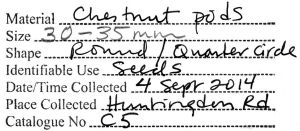 Material Chestnut pods
Size 30-35mm
Shape Round / Quarter Circle
Identifiable Use Seeds
Date/Time Collected 4 Sept 2014
Place Collected Huntingdon Rd
Catalogue No C5